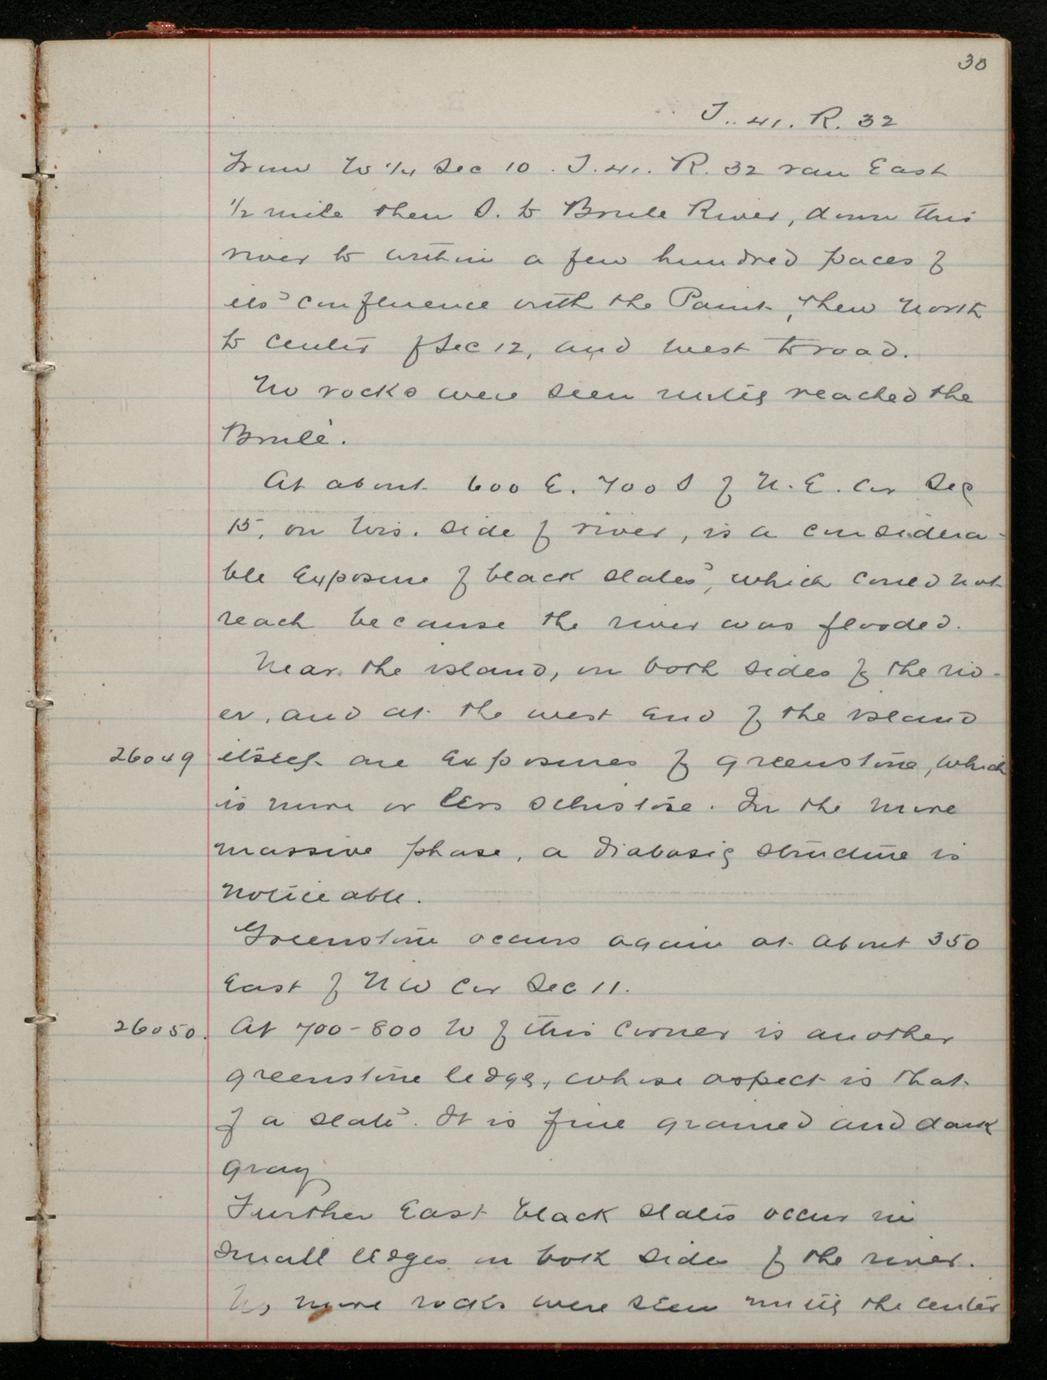 30
T. 41. R. 32
From W 1/4 Sec 10. T. 41. R. 32 ran East
1/2 mile then S. to Brule River, down this
river to within a few hundred paces of
its confluence with the Paint, then North
to center of Sec 12, and west to road.
No rocks were seen until reached the
Brulé.
At about 600 E. 700 S of N. E. Cor Sec
15, on Wis. side of river, is a considera-
ble exposure of black slates, which could not
reach because the river was flooded.
Near the island, on both sides of the riv-
er, and at the west end of the island
26049 itself are exposures of greenstone, which
is more or less schistose. In the more
massive phase, a diabasic structure is
noticeable.
Greenstone occurs again at about 350
East of NW Cor Sec 11.
26050. At 700-800 W of this corner is another
greenstone ledge, whose aspect is that
of a slate. It is fine grained and dark
gray
Further East black slates occur in
small ledges on both sides of the river.
No more rocks were seen until the center